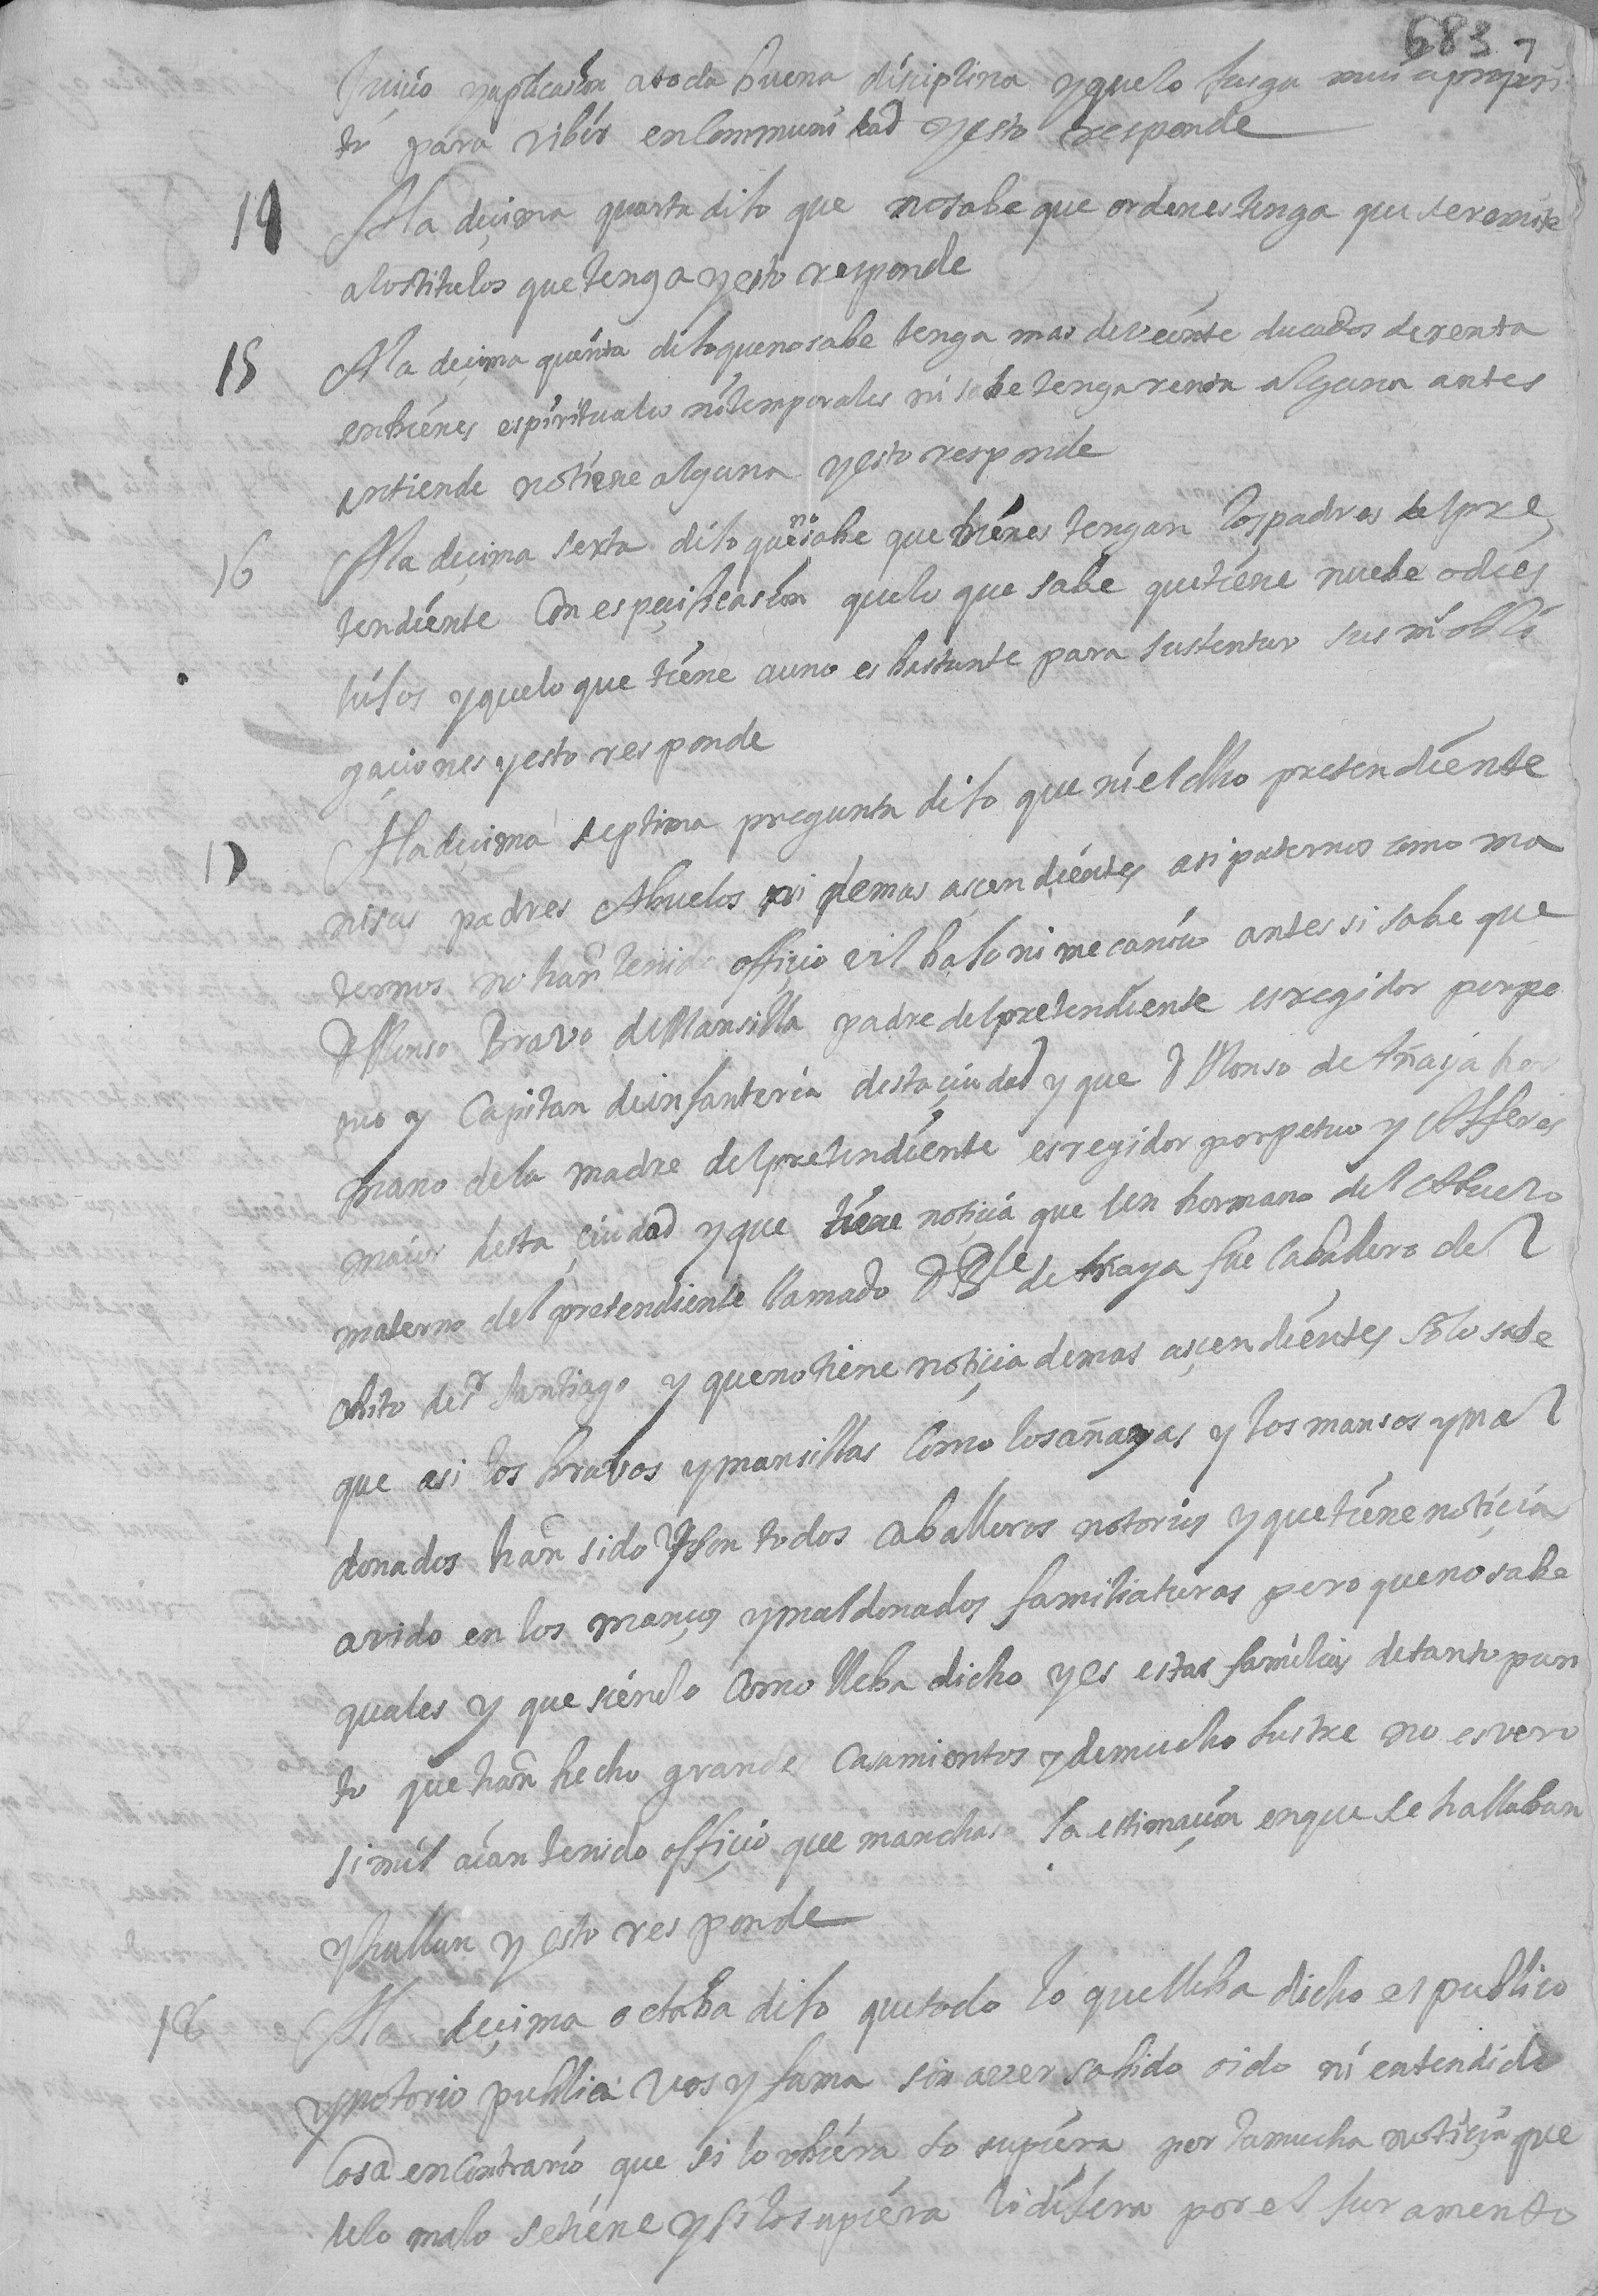 683 7
Juiçio y aplicasion a toda buena disiplina y que lo jusga mui a proposi
to para vibir en Communidad y esto responde
14 A la deçima quarta dijo que no sabe que ordenes tenga que se remite
a los titulos que tenga y esto responde
15 A la deçima quinta dijo que no sabe tenga mas de veinte ducados de renta
en bienes espirituales ni temporales ni sabe tenga renta alguna antes
entiende no tiene alguna y esto responde
16 A la deçima sexta dijo que no sabe que bienes tengan los padres del pre
tendiente Con espeçificasion que lo que sabe que tiene nuebe o dies
hijos y que lo que tiene aun no es bastante para sustentar sus obli
gaçiones y esto responde
17 A la deçima septima pregunta dijo que ni el dho pretendiente
ni sus padres Abuelos ni demas asendientes asi paternos como ma
ternos no han tenido offiçio vil bajo ni mecanico antes si sabe que
D Alonso Bravo de Mansilla padre del pretendiente es regidor perpe
tuo y Capitan de infanteria desta çiudad y que D Alonso de Añaya her
mano de la madre del pretendiente es regidor perpetuo y Alferes
maior desta çiudad y que tiene notiçia que un hermano del Abuelo
materno del pretendiente llamado D Ble de Añaya fue Caballero del
abito de Santiago y que no tiene notiçia de mas asçendientes solo sabe
que asi los bravos y mansillas Como los añayas y los mansos y mal
donados han sido y son todos Caballeros notorios y que tiene notiçia
avido en los mansos y maldonados familiaturas pero que no sabe
quales y que siendo Como lleba dicho y es estas familias de tanto pun
to que han hecho grandes Casamientos y de mucho lustre no es vero
simil aian tenido offiçio que manchase la estimaçion en que se hallaban
y hallan y esto responde
18 A la deçima octaba dijo que todo lo que lleba dicho es publico
y notorio publica vos y fama sin aver sabido oido ni entendido
Cosa en Contrario que si lo obiera lo supiera por la mucha notiçia que
de lo malo se tiene y si lo supiera lo dijera por el juramento